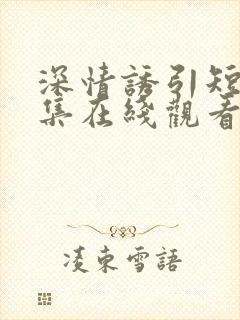 深情誘引短
集在綫觀看
凌東雪語